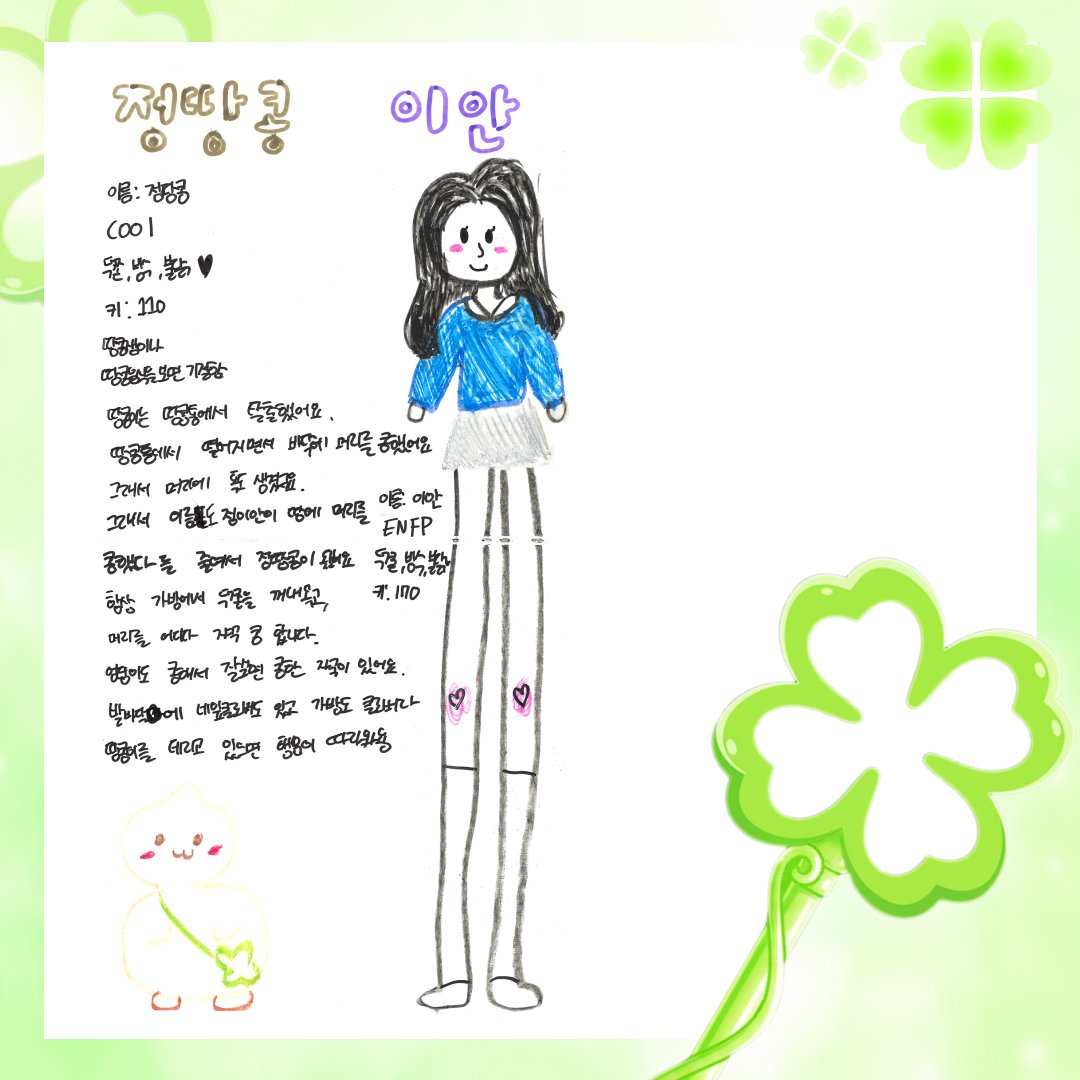 정땅콩
이안
이름: 정땅콩
COOl
키: 110
땅콩잼이나
땅콩알을 보면 기절함
땅콩이는 땅콩통에서 탈출했어요.
땅콩통에서 떨어지면서 바닥에 머리를 콩했어요
그래서 머리에 혹 생겼죠.
그래서 이름도 정이안이 땅에 머리를
콩했다를 줄여서 정땅콩이 됐어요
항상 가방에서 무언을 꺼내먹고,
머리를 어디다 자꾸 콩 합니다.
엉덩이도 콩해서 잘보면 콩한 자국이 있어요.
발바닥에 네잎클로버도 있고 가방도 클로버라
땅콩이를 데리고 있으면 행운이 따라와용
이름: 이안
ENFP
키: 170